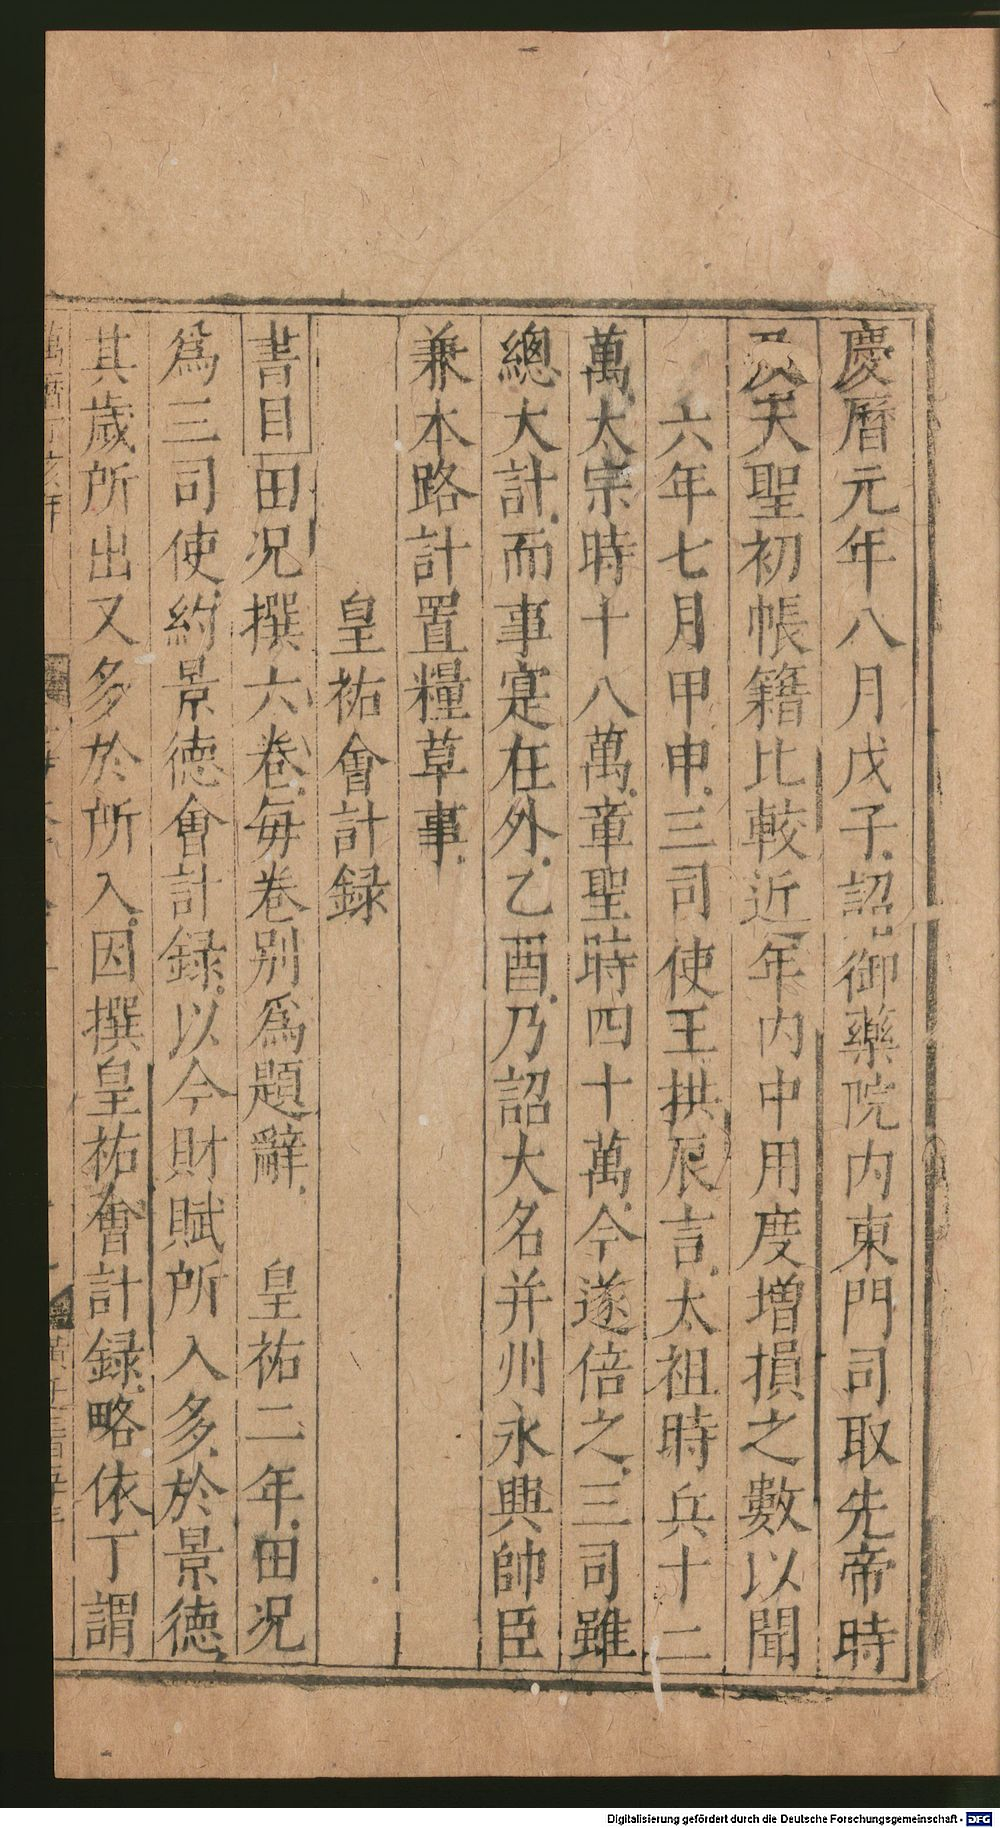 慶曆元年八月戊子詔御藥院内東門司取先帝時
及天聖初帳籍比較近年内中用度增損之數以聞
六年七月甲申三司使王拱辰言太祖時兵十二
萬太宗時十八萬章聖時四十萬今遂倍之三司雖
總大計而事寔在外乙酉乃詔大名并州永興帥臣
兼本路計置糧草事
皇祐會計録
書目田况撰六卷每卷别爲題辭 皇祐二年田况
爲三司使約景德會計録以今財賦所入多於景德
其歲所出又多於所入因撰皇祐會計録略依丁謂
Digitalisierung gefördert durch die Deutsche Forschungsgemeinschaft - DFG